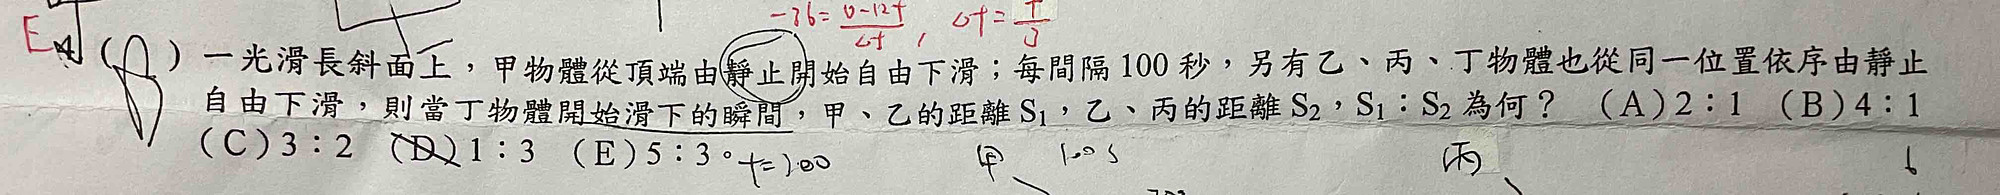 -36=(0-12t)/Δt , Δt=t/3
E
( ) 一光滑長斜面上，甲物體從頂端由靜止開始自由下滑；每間隔 100 秒，另有乙、丙、丁物體也從同一位置依序由靜止
自由下滑，則當丁物體開始滑下的瞬間，甲、乙的距離 S₁，乙、丙的距離 S₂，S₁：S₂ 為何？ (A) 2：1 (B) 4：1
(C) 3：2 (D) 1：3 (E) 5：3。
甲 100s 丙